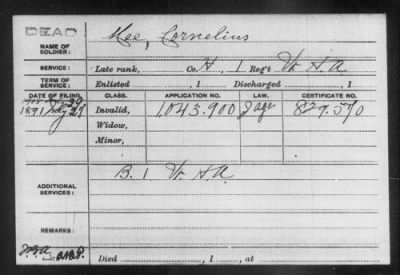 DEAD
NAME OF SOLDIER: Mee, Cornelius
SERVICE: Late rank, Co. H, 1 Reg't Vt. H.A.
TERM OF SERVICE: Enlisted , 1 Discharged , 1
DATE OF FILING. CLASS. APPLICATION NO. LAW. CERTIFICATE NO.
1891 July 27 Invalid, 1,043,900 829,570
Widow,
Minor,
ADDITIONAL SERVICES: B. 1 Vt. H.A.
REMARKS:
Died , 1 , at